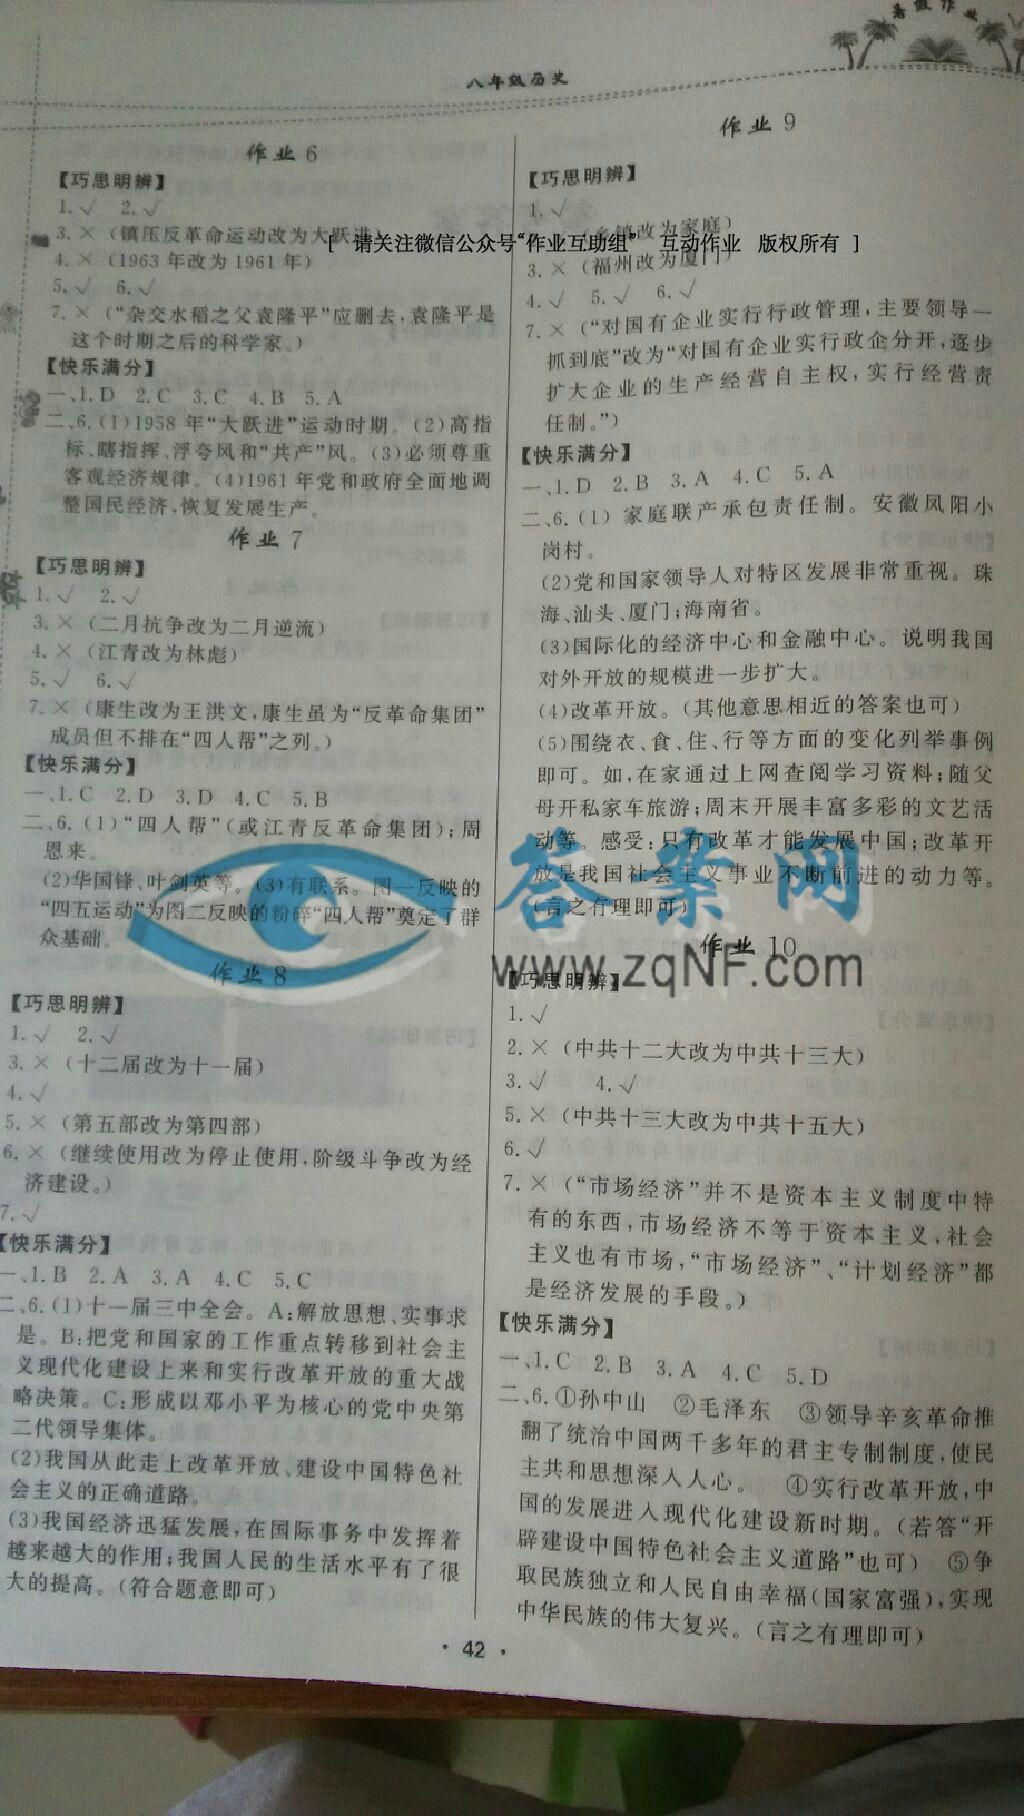 暑假作业
八年级历史
作业6
【巧思明辨】
1.√ 2.√
3.×(镇压反革命运动改为大跃进)
4.×(1963年改为1961年)
5.√ 6.√
7.×(“杂交水稻之父袁隆平”应删去,袁隆平是
这个时期之后的科学家。)
【快乐满分】
一、1.D 2.C 3.C 4.B 5.A
二、6.(1)1958年“大跃进”运动时期。(2)高指
标、瞎指挥、浮夸风和“共产”风。(3)必须尊重
客观经济规律。(4)1961年党和政府全面地调
整国民经济,恢复发展生产。
作业7
【巧思明辨】
1.√ 2.√
3.×(二月抗争改为二月逆流)
4.×(江青改为林彪)
5.√ 6.√
7.×(康生改为王洪文,康生虽为“反革命集团”
成员但不排在“四人帮”之列。)
【快乐满分】
一、1.C 2.D 3.D 4.C 5.B
二、6.(1)“四人帮”(或江青反革命集团);周
恩来。
(2)华国锋、叶剑英等。(3)有联系。图一反映的
“四五运动”为图二反映的粉碎“四人帮”奠定了群
众基础。
作业8
【巧思明辨】
1.√ 2.√
3.×(十二届改为十一届)
4.√
5.×(第五部改为第四部)
6.×(继续使用改为停止使用,阶级斗争改为经
济建设。)
7.√
【快乐满分】
一、1.B 2.A 3.A 4.C 5.C
二、6.(1)十一届三中全会。A:解放思想、实事求
是。B:把党和国家的工作重点转移到社会主
义现代化建设上来和实行改革开放的重大战
略决策。C:形成以邓小平为核心的党中央第
二代领导集体。
(2)我国从此走上改革开放、建设中国特色社
会主义的正确道路。
(3)我国经济迅猛发展,在国际事务中发挥着
越来越大的作用;我国人民的生活水平有了很
大的提高。(符合题意即可)
作业9
【巧思明辨】
1.√
乡镇改为家庭)
[ 请关注微信公众号“作业互助组” 互动作业 版权所有 ]
3.×(福州改为厦门)
4.√ 5.√ 6.√
7.×(“对国有企业实行行政管理,主要领导一
抓到底”改为“对国有企业实行政企分开,逐步
扩大企业的生产经营自主权,实行经营责
任制。”)
【快乐满分】
一、1.D 2.B 3.A 4.C 5.A
二、6.(1)家庭联产承包责任制。安徽凤阳小
岗村。
(2)党和国家领导人对特区发展非常重视。珠
海、汕头、厦门;海南省。
(3)国际化的经济中心和金融中心。说明我国
对外开放的规模进一步扩大。
(4)改革开放。(其他意思相近的答案也可)
(5)围绕衣、食、住、行等方面的变化列举事例
即可。如,在家通过上网查阅学习资料;随父
母开私家车旅游;周末开展丰富多彩的文艺活
动等。感受:只有改革才能发展中国;改革开
放是我国社会主义事业不断前进的动力等。
(言之有理即可)
答案网
www.zqNF.com
作业10
【巧思明辨】
1.√
2.×(中共十二大改为中共十三大)
3.√ 4.√
5.×(中共十三大改为中共十五大)
6.√
7.×(“市场经济”并不是资本主义制度中特
有的东西,市场经济不等于资本主义,社会
主义也有市场,“市场经济”、“计划经济”都
是经济发展的手段。)
【快乐满分】
一、1.C 2.B 3.A 4.C 5.D
二、6.①孙中山 ②毛泽东 ③领导辛亥革命推
翻了统治中国两千多年的君主专制制度,使民
主共和思想深入人心。 ④实行改革开放,中
国的发展进入现代化建设新时期。(若答“开
辟建设中国特色社会主义道路”也可) ⑤争
取民族独立和人民自由幸福(国家富强),实现
中华民族的伟大复兴。(言之有理即可)
· 42 ·